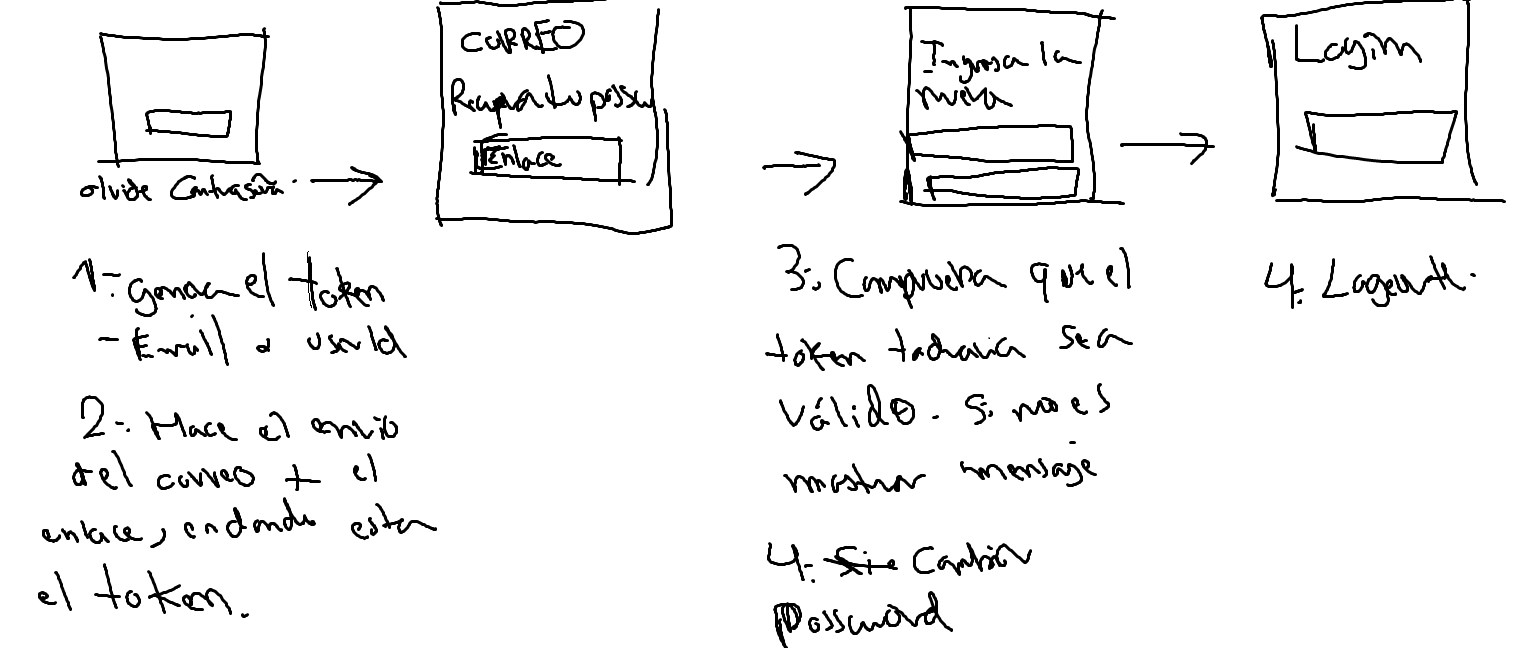 olvide Contraseña.
CORREO
Recupera tu passw
Enlace
Ingresa la
nueva
Login
1-. genera el token
- Email o userId
2-. Hace el envio
del correo + el
enlace, en donde esta
el token.
3-. Comprueba que el
token todavia sea
válido. Si no es
mostrar mensaje
4-. Cambiar
Password
4. Loguearte.